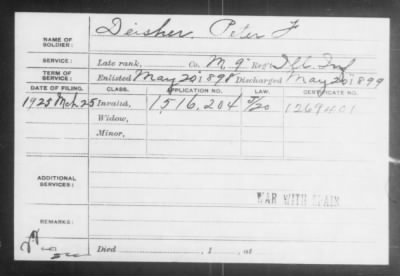 NAME OF SOLDIER: Deisher, Peter F
SERVICE: Late rank, Co. M, 9" Reg't Ills. Inf
TERM OF SERVICE: Enlisted May 20, 1898 Discharged May 20, 1899
DATE OF FILING. CLASS. APPLICATION NO. LAW. CERTIFICATE NO.
1925 Mch. 25 Invalid, 1,516,204 1269401
Widow,
Minor,
ADDITIONAL SERVICES:
WAR WITH SPAIN
REMARKS:
Died , 1 , at